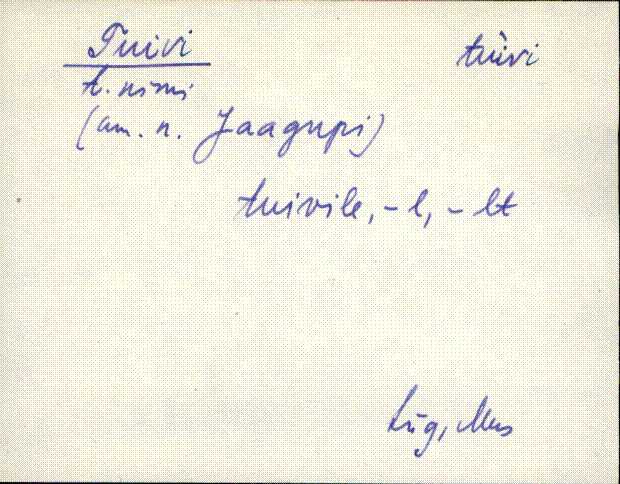 Tuivi tu̇ivi
t. nimi
(am. n. Jaagupi)
tuivile, -l, -lt
Lüg, Mus